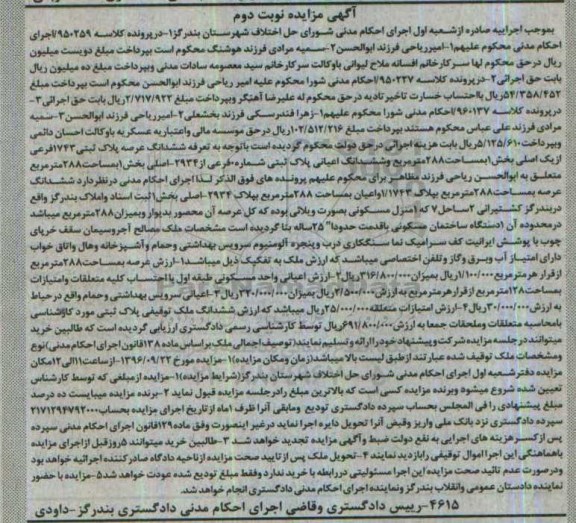 آگهی مزایده نوبت دوم
بموجب اجراییه صادره ازشعبه اول اجرای احکام مدنی شورای حل اختلاف شهرستان بندرگز۱-درپرونده کلاسه ۹۵۰۲۵۹/اجرای
احکام مدنی محکوم علیهم۱-امیرریاحی فرزند ابوالحسن۲-سمیه مرادی فرزند هوشنگ محکوم است بپرداخت مبلغ دویست میلیون
ریال درحق محکوم لها سرکارخانم افسانه ملاح لیوانی باوکالت سرکارخانم سید معصومه سادات مدنی وبپرداخت مبلغ ده میلیون ریال
بابت حق اجرائی۲-درپرونده کلاسه ۹۵۰۲۳۷/اجرای احکام مدنی شورا محکوم علیه امیر ریاحی فرزند ابوالحسن محکوم است بپرداخت مبلغ
۵۴/۳۵۸/۴۵۲ریال بااحتساب خسارت تاخیر تادیه در حق محکوم له علیرضا آهنگر وبپرداخت مبلغ ۲/۷۱۷/۹۲۲ریال بابت حق اجرائی۳-
درپرونده کلاسه ۹۶۰۱۳۷/اجرای احکام مدنی شورا محکوم علیهم۱-زهرا فندرسکی فرزند بخشعلی۲-امیرریاحی فرزند ابوالحسن۳-سمیه
مرادی فرزند علی عباس محکوم هستند بپرداخت مبلغ ۱۰۲/۵۱۲/۲۱۶ریال درحق موسسه مالی واعتباریه عسکریه باوکالت احسان دائمی
وبپرداخت۵/۱۲۵/۶۱۰ریال بابت هزینه اجرائی درحق دولت محکوم گردیده است باتوجه به تعرفه ششدانگ عرصه پلاک ثبتی۱۷۴۳فرعی
ازیک اصلی بخش۱بمساحت۲۸۸مترمربع وششدانگ اعیانی پلاک ثبتی شماره-فرعی از۲۹۳۴-اصلی بخش۱بمساحت۲۸۸مترمربع
متعلق به ابوالحسن ریاحی فرزند مظاهر برای محکوم علیهم پرونده های فوق الذکر لذا اجرای احکام مدنی درنظردارد ششدانگ
عرصه بمساحت۲۸۸مترمربع بپلاک ۱/۱۷۴۳واعیان بمساحت ۲۸۸مترمربع بپلاک ۲۹۳۴-اصلی بخش۱ثبت اسناد واملاک بندرگز واقع
دربندرگز کشتیرانی ۲-ساحل۷ که ۱منزل مسکونی بصورت ویلائی بوده که کل عرصه آن محصور بدیوار وبمیزان۲۸۸مترمربع میباشد
درمحدوده آن (دستگاه ساختمان مسکونی باقدمت حدودا" ۲۵ساله بنا گردیده است مشخصات ملک مصالح آجروسیمان سقف خرپای
چوب با پوشش ایرانیت کف سرامیک نما سنگکاری درب وپنجره آلومنیوم سرویس بهداشتی وحمام وآشپزخانه وهال واتاق خواب
دارای امتیاز آب وبرق وگاز وتلفن اختصاصی میباشد که ارزش ملک به تفکیک ذیل میباشد۱-ارزش عرصه بمساحت۲۸۸مترمربع
ازقرار هرمترمربع۱/۱۰۰/۰۰۰ریال بمیزان۳۱۶/۸۰۰/۰۰۰ریال۲-ارزش اعیانی واحد مسکونی طبقه اول بااحتساب کلیه متعلقات وامتیازات
بمساحت۱۲۸مترمربع ازقرار هرمترمربع به ارزش۲/۵۰۰/۰۰۰ریال بمیزان۳۲۰/۰۰۰/۰۰۰ریال۳-اعیانی سرویس بهداشتی وحمام واقع درحیاط
به ارزش۳۰/۰۰۰/۰۰۰ریال۴-ارزش امتیازات متعلقه۲۵/۰۰۰/۰۰۰ریال میباشد که ارزش ششدانگ ملک توقیفی پلاک ثبتی مورد کارشناسی
بامحاسبه متعلقات وملحقات جمعا به ارزش۶۹۱/۸۰۰/۰۰۰ریال توسط کارشناسی رسمی دادگستری ارزیابی گردیده است که طالبین خرید
میتوانند درجلسه مزایده شرکت وپیشنهاد خودراارائه وتسلیم نمایند(توصیف اجمالی ملک براساس ماده ۱۳۸قانون اجرای احکام مدنی)نوع
ومشخصات ملک توقیف شده عبارتند ازطبق لیست بالا میباشد(زمان ومکان مزایده)۱-مزایده مورخ ۱۳۹۶/۰۹/۲۲-ازساعت۱۱الی۱۲مکان
مزایده دفترشعبه اول اجرای احکام مدنی شورای حل اختلاف شهرستان بندرگز(شرایط مزایده)۱-مزایده ازمبلغی که توسط کارشناس
تعیین شده شروع میشود وبرنده مزایده کسی است که بالاترین مبلغ رادرجلسه مزایده قبول نماید ۲-برنده مزایده میبایست ده درصد
مبلغ پیشنهادی را فی المجلس بحساب سپرده دادگستری تودیع ومابقی آنرا ظرف ۱ماه ازتاریخ اجرای مزایده بحساب۲۱۷۱۲۹۴۷۹۲۰۰۰
سپرده دادگستری نزد بانک ملی واریز وقبض آنرا تحویل دایره اجرا نماید درغیر اینصورت وفق ماده۱۲۹قانون اجرای احکام مدنی سپرده
پس ازکسرهزینه های اجرایی به نفع دولت ضبط وآگهی مزایده تجدید خواهد شد ۳-طالبین خرید میتوانند ۵روزقبل ازاجرای مزایده
باهماهنگی این اجرا اموال توقیفی رابازدید نمایند ۴-تحویل ملک پس از تایید صحت مزایده ازناحیه دادگاه صادرکننده اجرائیه خواهد بود
ودرصورت عدم تائید صحت مزایده این اجرا مسئولیتی دررابطه با خرید ندارد وفقط مبلغ تودیع شده عودت خواهد شد۵-مزایده با حضور
نماینده دادستان عمومی وانقلاب بندرگز ونماینده اجرای احکام مدنی دادگستری انجام خواهد شد.
۴۶۱۵-رییس دادگستری وقاضی اجرای احکام مدنی دادگستری بندرگز-داودی